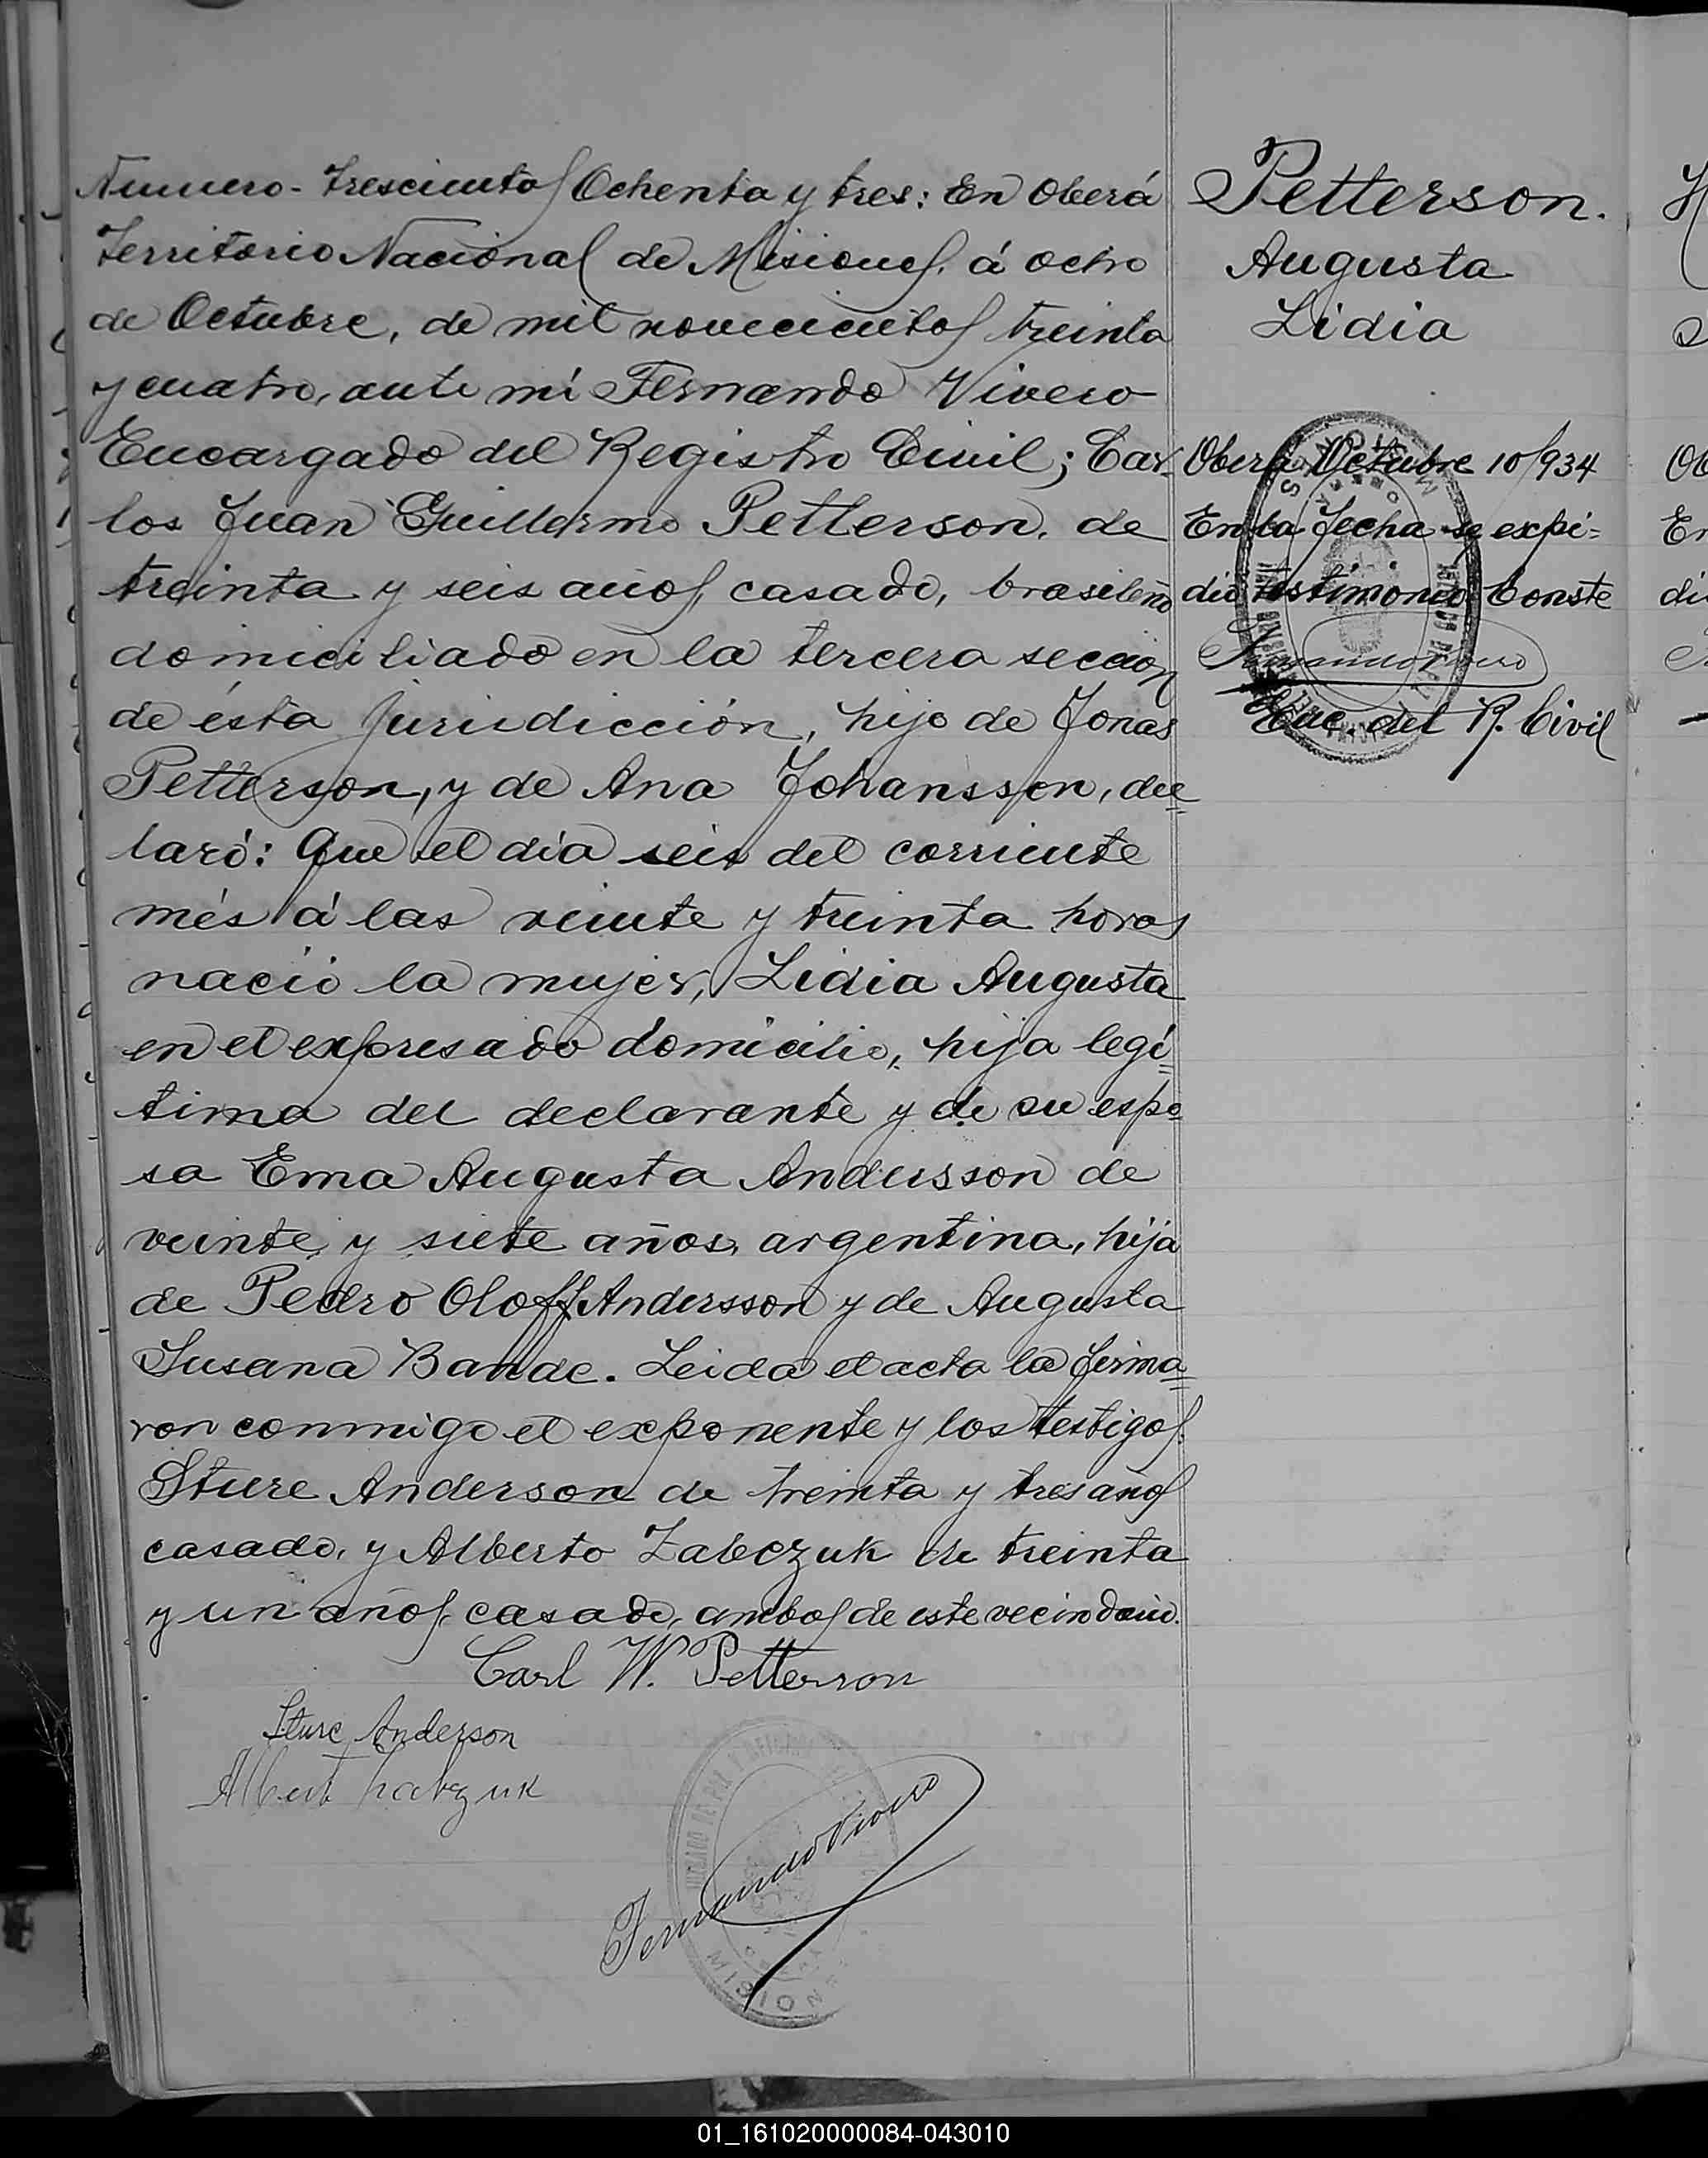 Numero- Trescientos Ochenta y tres: En Oberá
Territorio Nacional de Misiones, á ocho
de Octubre, de mil novecientos treinta
y cuatro, ante mí Fernando Vivero
Encargado del Registro Civil; Car-
los Juan Guillermo Petterson, de
treinta y seis años, casado, brasileño
domiciliado en la tercera sección
de ésta Jurisdicción, hijo de Jonas
Petterson, y de Ana Johansson, dec=
laró: Que el día seis del corriente
més á las veinte y treinta horas
nació la mujer, Lidia Augusta
en el expresado domicilio, hija legí=
tima del declarante y de su espo=
sa Ema Augusta Andersson de
veinte y siete años, argentina, hija
de Pedro Oloff Andersson y de Augusta
Susana Bande. Leida el acta la firma=
ron conmigo el exponente y los testigos.
Sture Anderson de treinta y tres años
casado, y Alberto Zabczuk de treinta
y un años, casado, ambos de este vecindario.
Carl W. Petterson
Sture Anderson
Albert Zabczuk
Fernando Vivero
JUZGADO DE PAZ
MISIONES
Petterson.
Augusta
Lidia
Oberá Octubre 10/934
En la fecha se expi=
dió testimonio. Conste
Fernando Vivero
Enc. del R. Civil
01_161020000084-043010